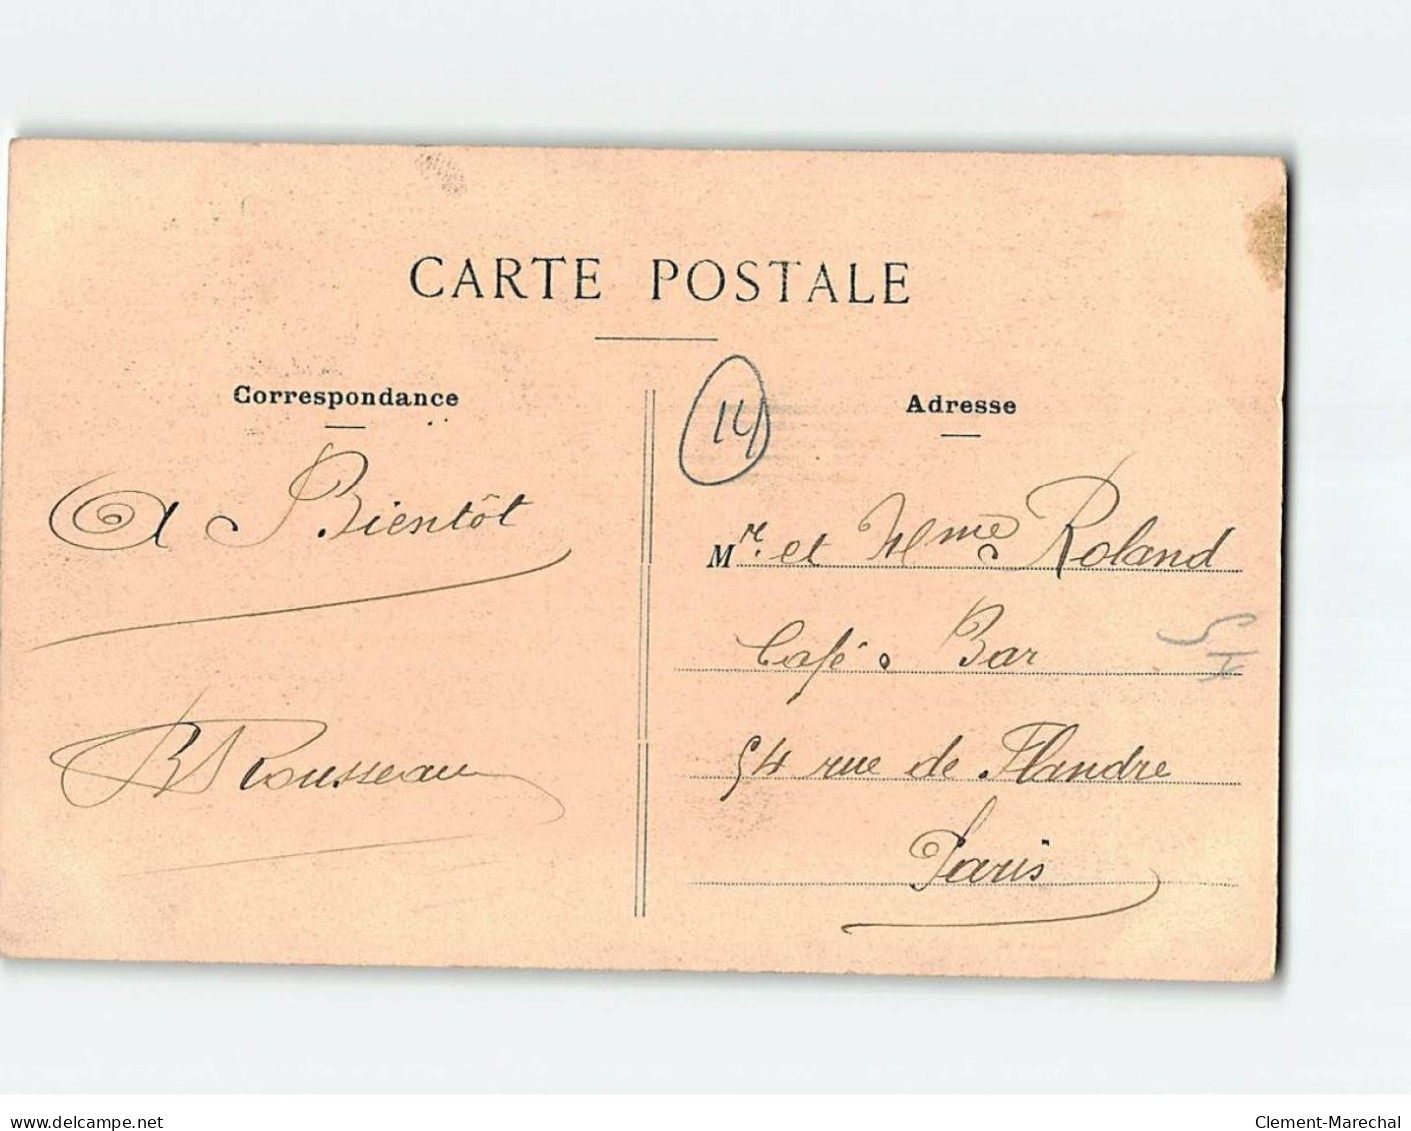 CARTE POSTALE
Correspondance
A Bientôt
Rousseau
Adresse
14
Mr. et Mme Roland
Café Bar
54 rue de Flandre
Paris
www.delcampe.net
Clement-Marechal